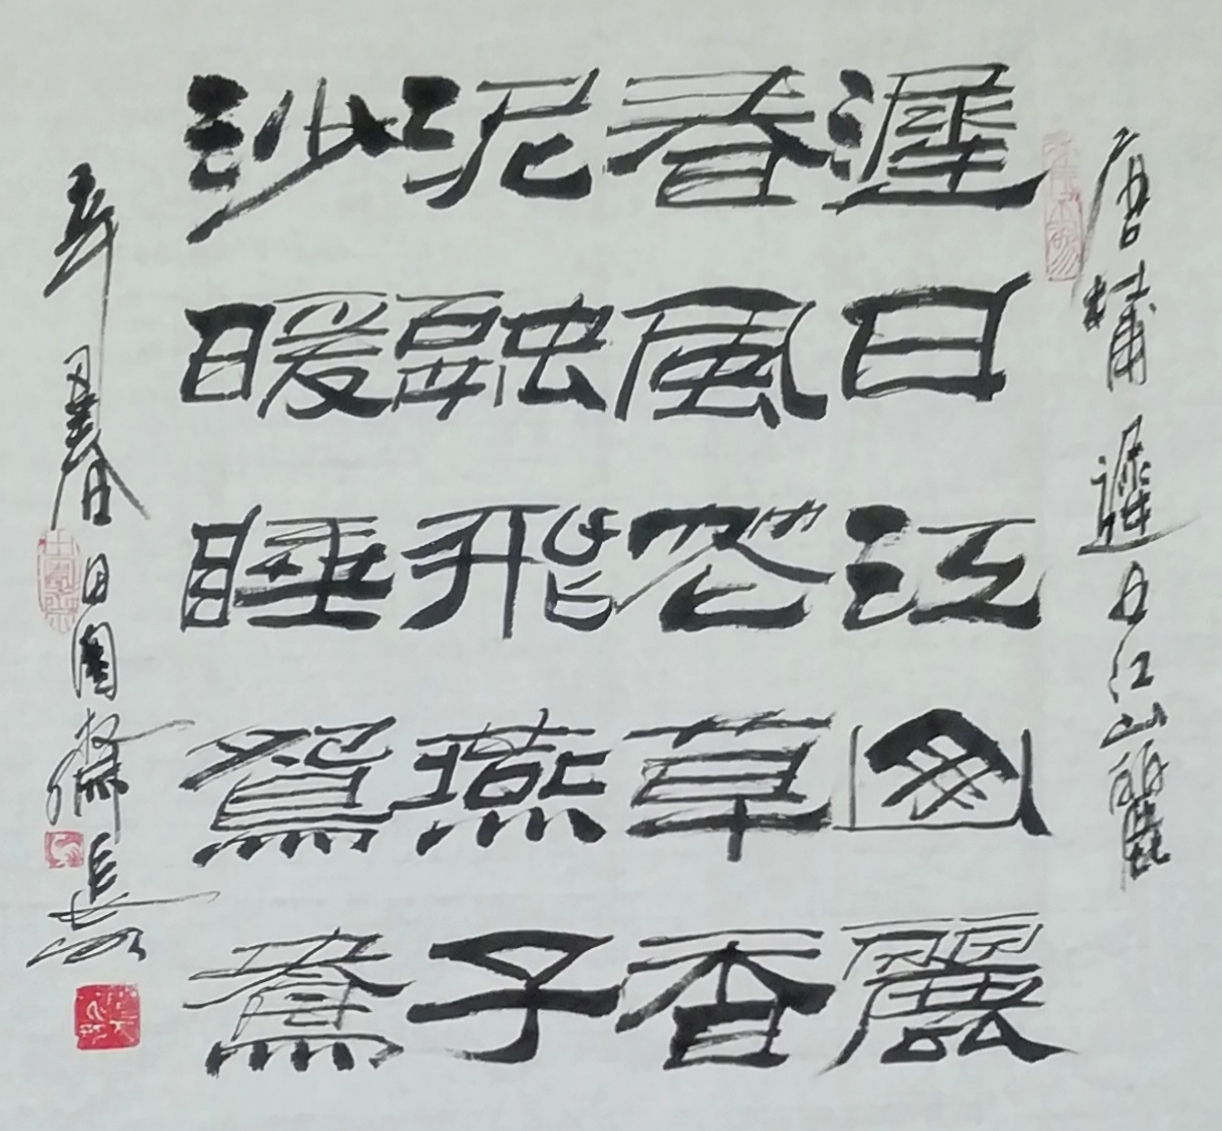 唐 杜甫 遲日江山麗
遲日江山麗
春風花草香
泥融飛燕子
沙暖睡鴛鴦
辛丑春日